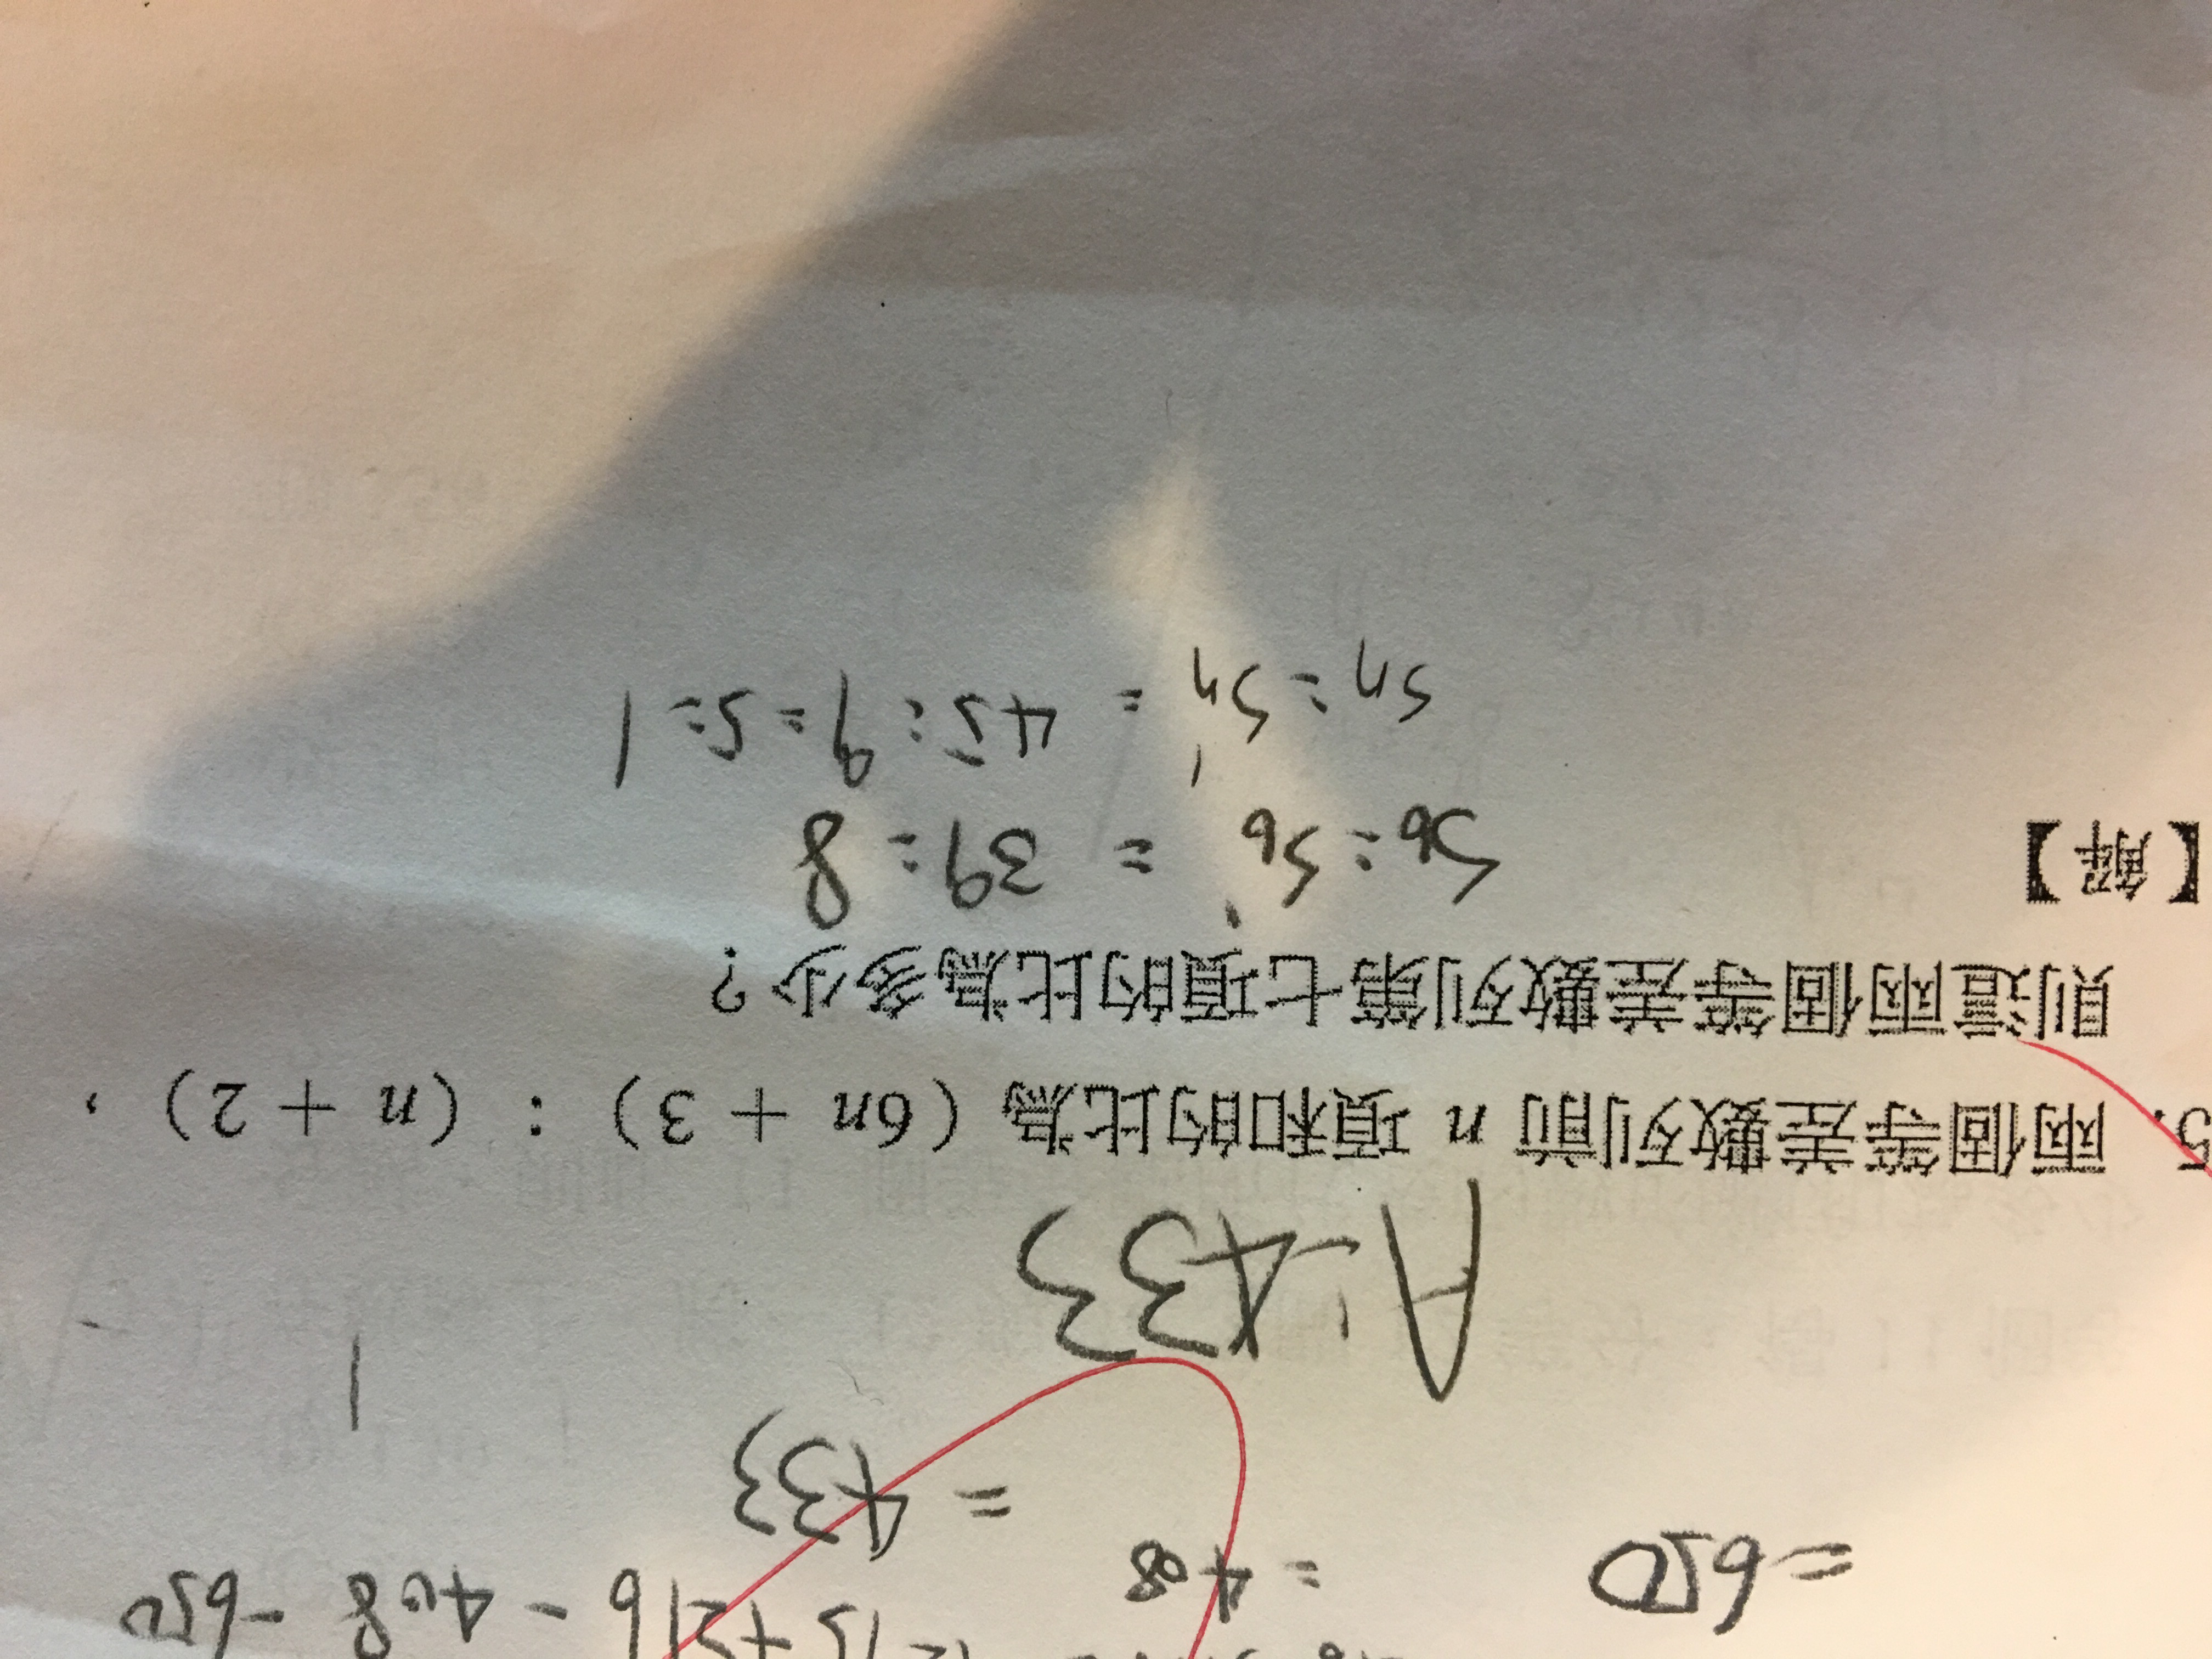 =650
=408
15+216-408-650
=433
A:433
5. 兩個等差數列前 n 項和的比為 (6n + 3) : (n + 2),
則這兩個等差數列第七項的比為多少?
【解】
S6:S6' = 39:8
Sn:Sn' = 45:9=5:1